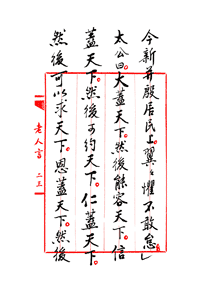 今新并殷居民上。翼々懼不敢怠」
太公曰。大蓋天下。然後能容天下。信
蓋天下。然後可約天下。仁蓋天下。
然後可以求天下。恩蓋天下。然後
老人言 二三